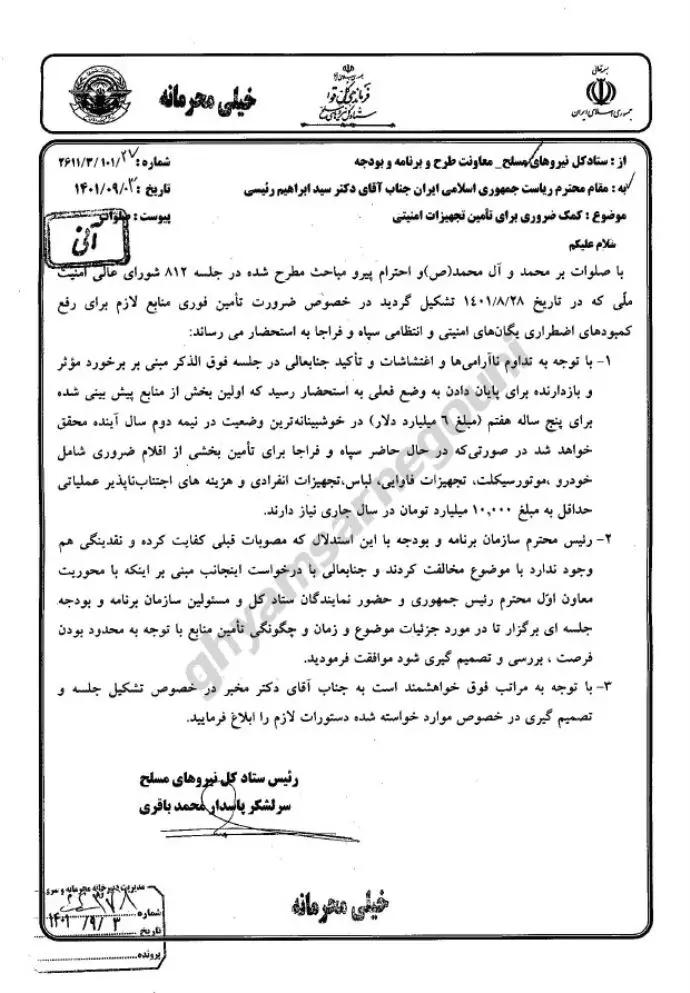 بسمه تعالی
جمهوری اسلامی ایران
خیلی محرمانه
شماره : ۲۶۱۱/۳/۱۰۱/۲۷
تاریخ : ۱۴۰۱/۰۹/۰۳
پیوست : صلوات
آنی
از : ستادکل نیروهای مسلح_ معاونت طرح و برنامه و بودجه
به : مقام محترم ریاست جمهوری اسلامی ایران جناب آقای دکتر سید ابراهیم رئیسی
موضوع : کمک ضروری برای تأمین تجهیزات امنیتی
سلام علیکم
با صلوات بر محمد و آل محمد(ص)و احترام پیرو مباحث مطرح شده در جلسه ۸۱۲ شورای عالی امنیت
ملّی که در تاریخ ۱۴۰۱/۸/۲۸ تشکیل گردید در خصوص ضرورت تأمین فوری منابع لازم برای رفع
کمبودهای اضطراری یگان‌های امنیتی و انتظامی سپاه و فراجا به استحضار می رساند:
۱- با توجه به تداوم ناآرامی‌ها و اغتشاشات و تأکید جنابعالی در جلسه فوق الذکر مبنی بر برخورد مؤثر
و بازدارنده برای پایان دادن به وضع فعلی به استحضار رسید که اولین بخش از منابع پیش بینی شده
برای پنج ساله هفتم (مبلغ ۶ میلیارد دلار) در خوشبینانه‌ترین وضعیت در نیمه دوم سال آینده محقق
خواهد شد در صورتی‌که در حال حاضر سپاه و فراجا برای تأمین بخشی از اقلام ضروری شامل
خودرو ،موتورسیکلت، تجهیزات فاوایی، لباس،تجهیزات انفرادی و هزینه های اجتناب‌ناپذیر عملیاتی
حداقل به مبلغ ۱۰,۰۰۰ میلیارد تومان در سال جاری نیاز دارند.
۲- رئیس محترم سازمان برنامه و بودجه با این استدلال که مصوبات قبلی کفایت کرده و نقدینگی هم
وجود ندارد با موضوع مخالفت کردند و جنابعالی با درخواست اینجانب مبنی بر اینکه با محوریت
معاون اوّل محترم رئیس جمهوری و حضور نمایندگان ستاد کل و مسئولین سازمان برنامه و بودجه
جلسه ای برگزار تا در مورد جزئیات موضوع و زمان و چگونگی تأمین منابع با توجه به محدود بودن
فرصت ، بررسی و تصمیم گیری شود موافقت فرمودید.
۳- با توجه به مراتب فوق خواهشمند است به جناب آقای دکتر مخبر در خصوص تشکیل جلسه و
تصمیم گیری در خصوص موارد خواسته شده دستورات لازم را ابلاغ فرمایید.
رئیس ستاد کل نیروهای مسلح
سرلشکر پاسدار محمد باقری
خیلی محرمانه
مدیریت دبیرخانه محرمانه و سری
شماره
تاریخ ۱۴۰۱/۹/۳
پرونده
ghyamsarnegouni